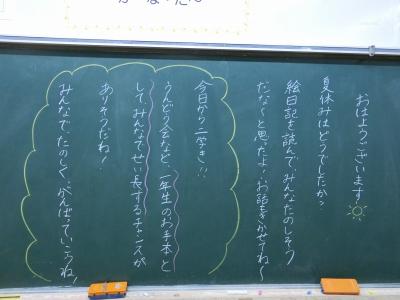 おはようございます
夏休みはどうでしたか？
絵日記を読んで、みんなたのしそう
だな〜と思ったよ！お話きかせてね〜
今日から二学き!!
うんどう会など、一年生のお手本と
して、みんなでせい長するチャンスが
ありそうだね！
みんなでたのしく、がんばっていこうね！